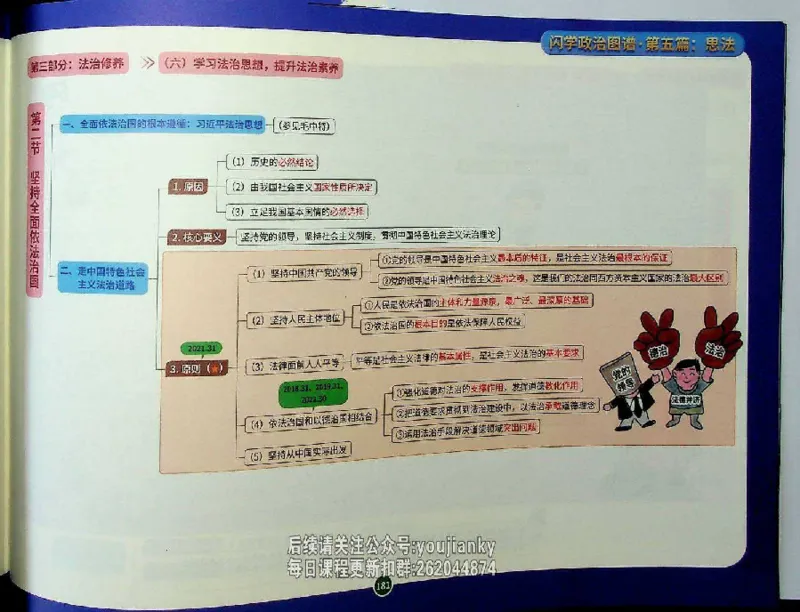 闪学政治图谱·第五篇：思法
第三部分：法治修养 >> （六）学习法治思想，提升法治素养
第二节 坚持全面依法治国
一、全面依法治国的根本遵循：习近平法治思想 （参见毛中特）
二、走中国特色社会主义法治道路
1. 原因
（1）历史的必然结论
（2）由我国社会主义国家性质所决定
（3）立足我国基本国情的必然选择
2. 核心要义 坚持党的领导，坚持社会主义制度，贯彻中国特色社会主义法治理论
2021.31
3. 原则（★）
（1）坚持中国共产党的领导
①党的领导是中国特色社会主义最本质的特征，是社会主义法治最根本的保证
②党的领导是中国特色社会主义法治之魂，这是我们的法治同西方资本主义国家的法治最大区别
（2）坚持人民主体地位
①人民是依法治国的主体和力量源泉，最广泛、最深厚的基础
②依法治国的根本目的是依法保障人民权益
（3）法律面前人人平等 平等是社会主义法律的基本属性，是社会主义法治的基本要求
2018.31，2019.31，
2021.30
（4）依法治国和以德治国相结合
①强化道德对法治的支撑作用，发挥道德教化作用
②把道德要求贯彻到法治建设中，以法治承载道德理念
③运用法治手段解决道德领域突出问题
（5）坚持从中国实际出发
德治
法治
党的
领导
法德并济
后续请关注公众号:youjianky
每日课程更新扣群:262044874
181